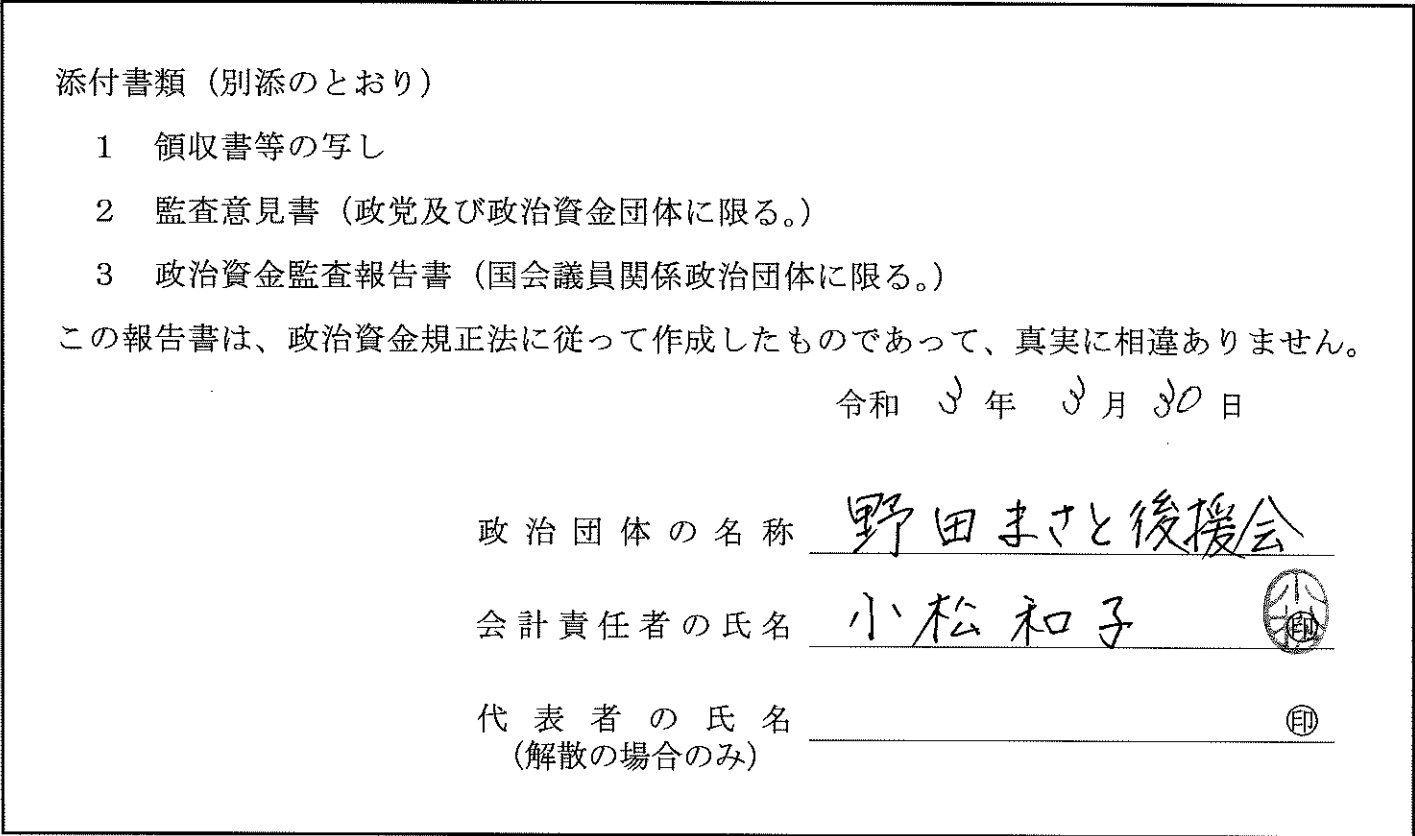 添付書類（別添のとおり）
1 領収書等の写し
2 監査意見書（政党及び政治資金団体に限る。）
3 政治資金監査報告書（国会議員関係政治団体に限る。）
この報告書は、政治資金規正法に従って作成したものであって、真実に相違ありません。
令和 3 年 3 月 30 日
政治団体の名称 野田まさと後援会
会計責任者の氏名 小松和子 小松 ㊞
代表者の氏名 ㊞
（解散の場合のみ）